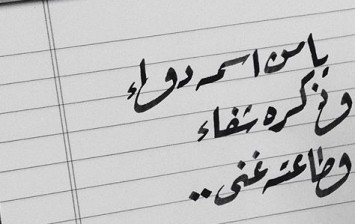 يا من اسمه دواء
وذكره شفاء
وطاعته غنى..